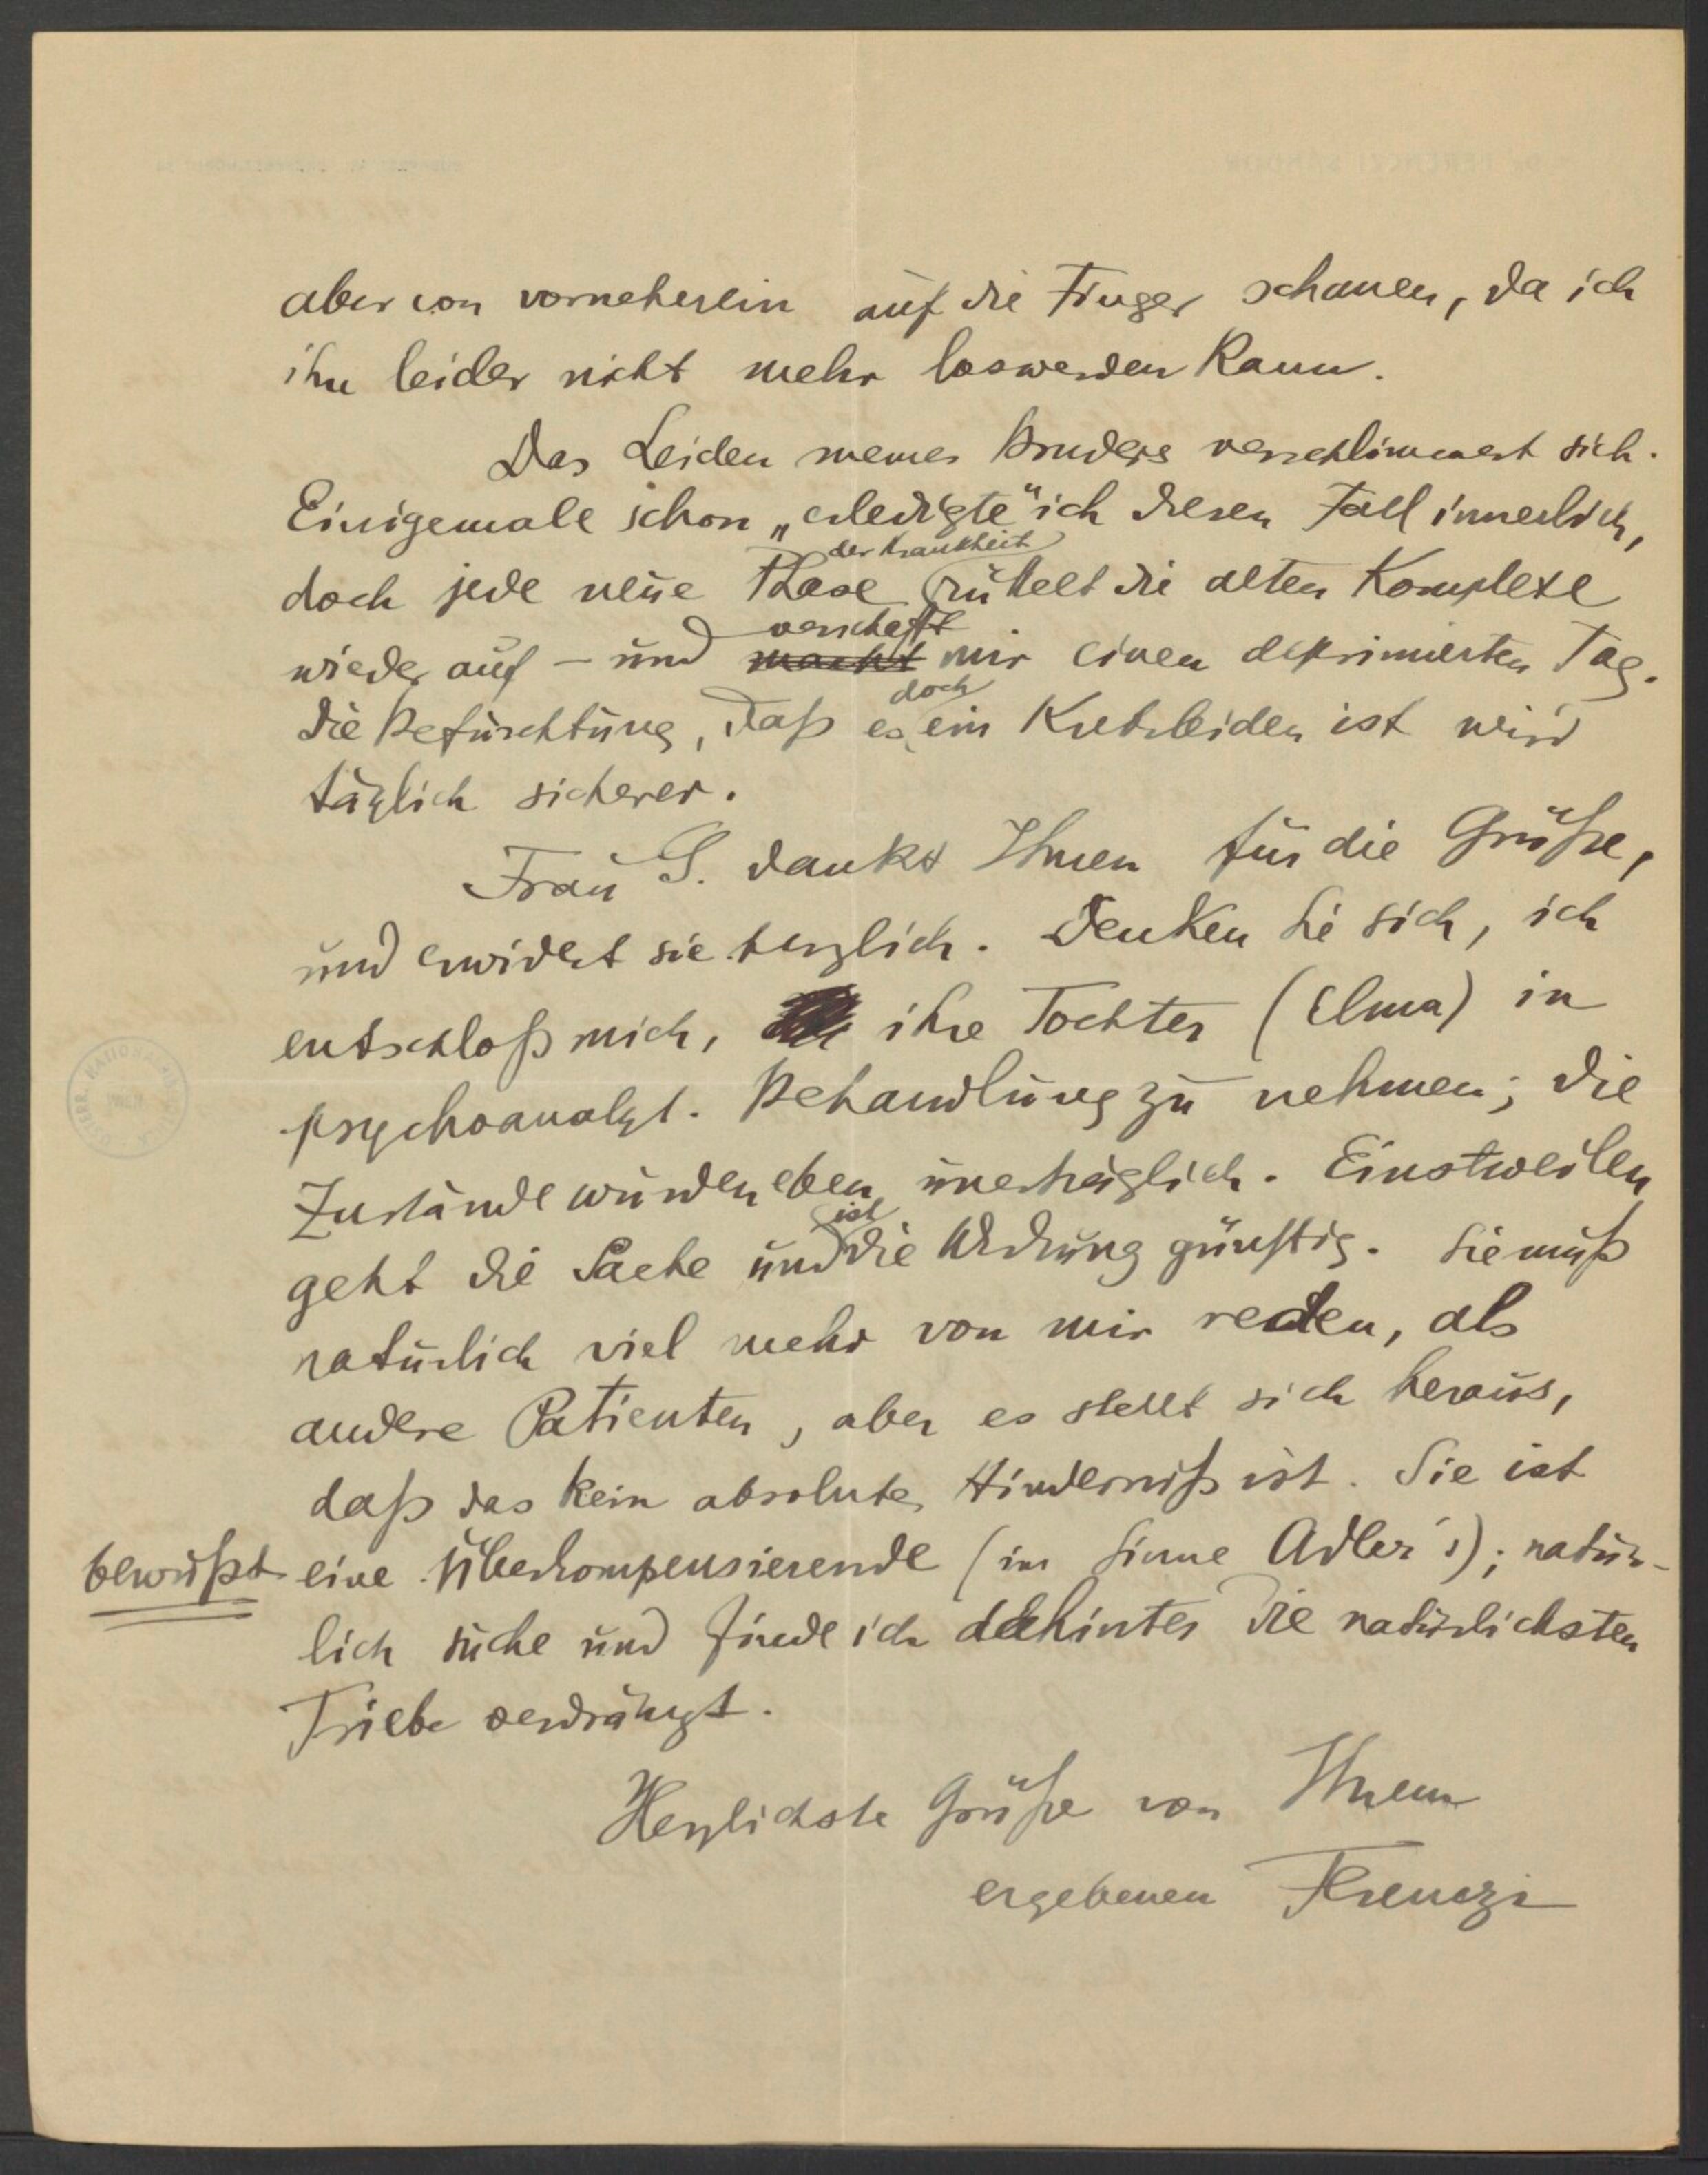 aber von vorneherein auf die Finger schauen, da ich
ihn leider nicht mehr loswerden kann.
Das Leiden meines Bruders verschlimmert sich.
Einigemale schon „erledigte“ ich diesen Fall innerlich,
der Krankheit
doch jede neue Phase rüttelt die alten Komplexe
verschafft
wieder auf – und macht mir einen deprimierten Tag.
doch
Die Befürchtung, daß es ein Krebsleiden ist wird
täglich sicherer.
Frau G. dankt Ihnen für die Grüße,
und erwidert sie herzlich. Denken Sie sich, ich
entschloß mich, ihre Tochter (Elma) in
psychoanalyt. Behandlung zu nehmen; die
Zustände wurden eben unerträglich. Einstweilen
ist
geht die Sache und die Wirkung günstig. Sie muß
natürlich viel mehr von mir reden, als
andere Patienten, aber es stellt sich heraus,
daß das kein absolutes Hinderniß ist. Sie ist
bewußt eine Überkompensierende (im Sinne Adler's); natür-
lich suche und finde ich dahinter die natürlichsten
Triebe verdrängt.
Herzlichste Grüße von Ihrem
ergebenen Ferenczi